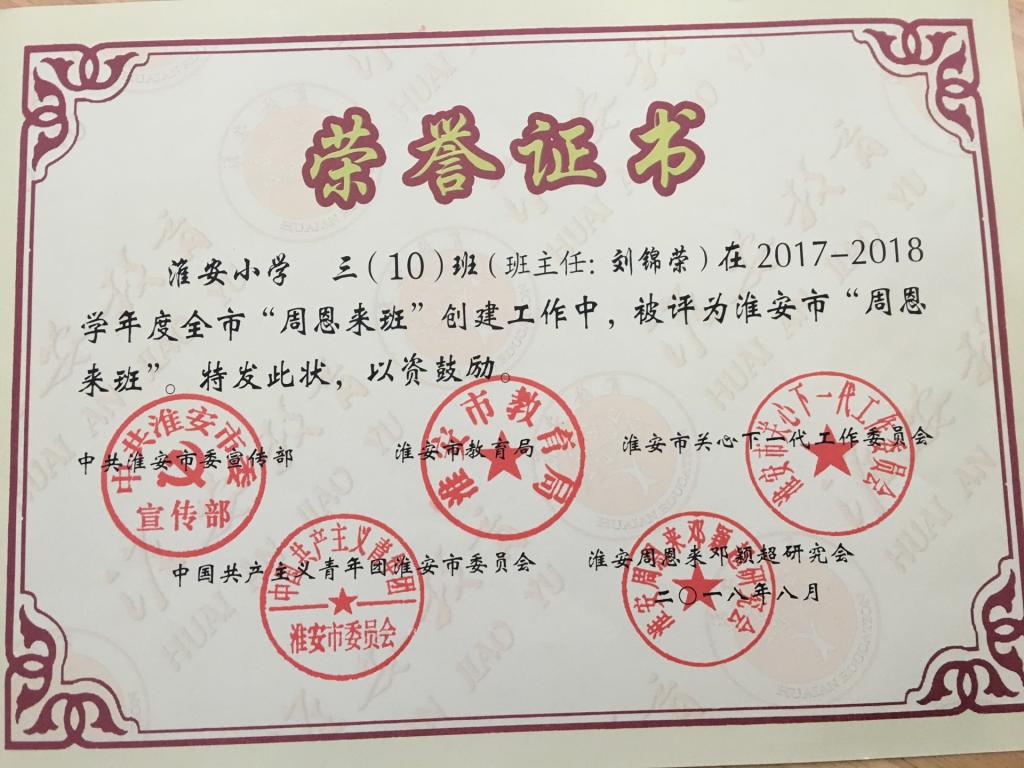 荣誉证书
淮安小学 三（10）班（班主任：刘锦荣）在2017-2018
学年度全市“周恩来班”创建工作中，被评为淮安市“周恩
来班”。特发此状，以资鼓励。
中共淮安市委宣传部 淮安市教育局 淮安市关心下一代工作委员会
中共淮安市委
宣传部
淮安市教育局
淮安市关心下一代工作委员会
中国共产主义青年团淮安市委员会 淮安周恩来邓颖超研究会
二〇一八年八月
中国共产主义青年团
淮安市委员会
淮安周恩来邓颖超研究会